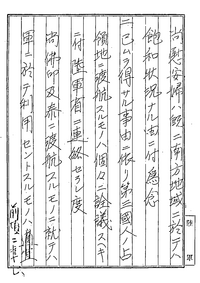 尚慰安婦ハ既ニ南方地域ニ於テハ
飽和状況ナル由ニ付為念
ニ已ムヲ得サル事由ニ依リ第三國人ノ占
領地ニ渡航スルモノハ個々ニ詮議スヘキ
ニ付陸軍省ニ連絡セラレ度
尚佛印及泰ニ渡航スルモノニ就テハ
軍ニ於テ利用セントスルモノハ
前項ニ準シ
陸軍